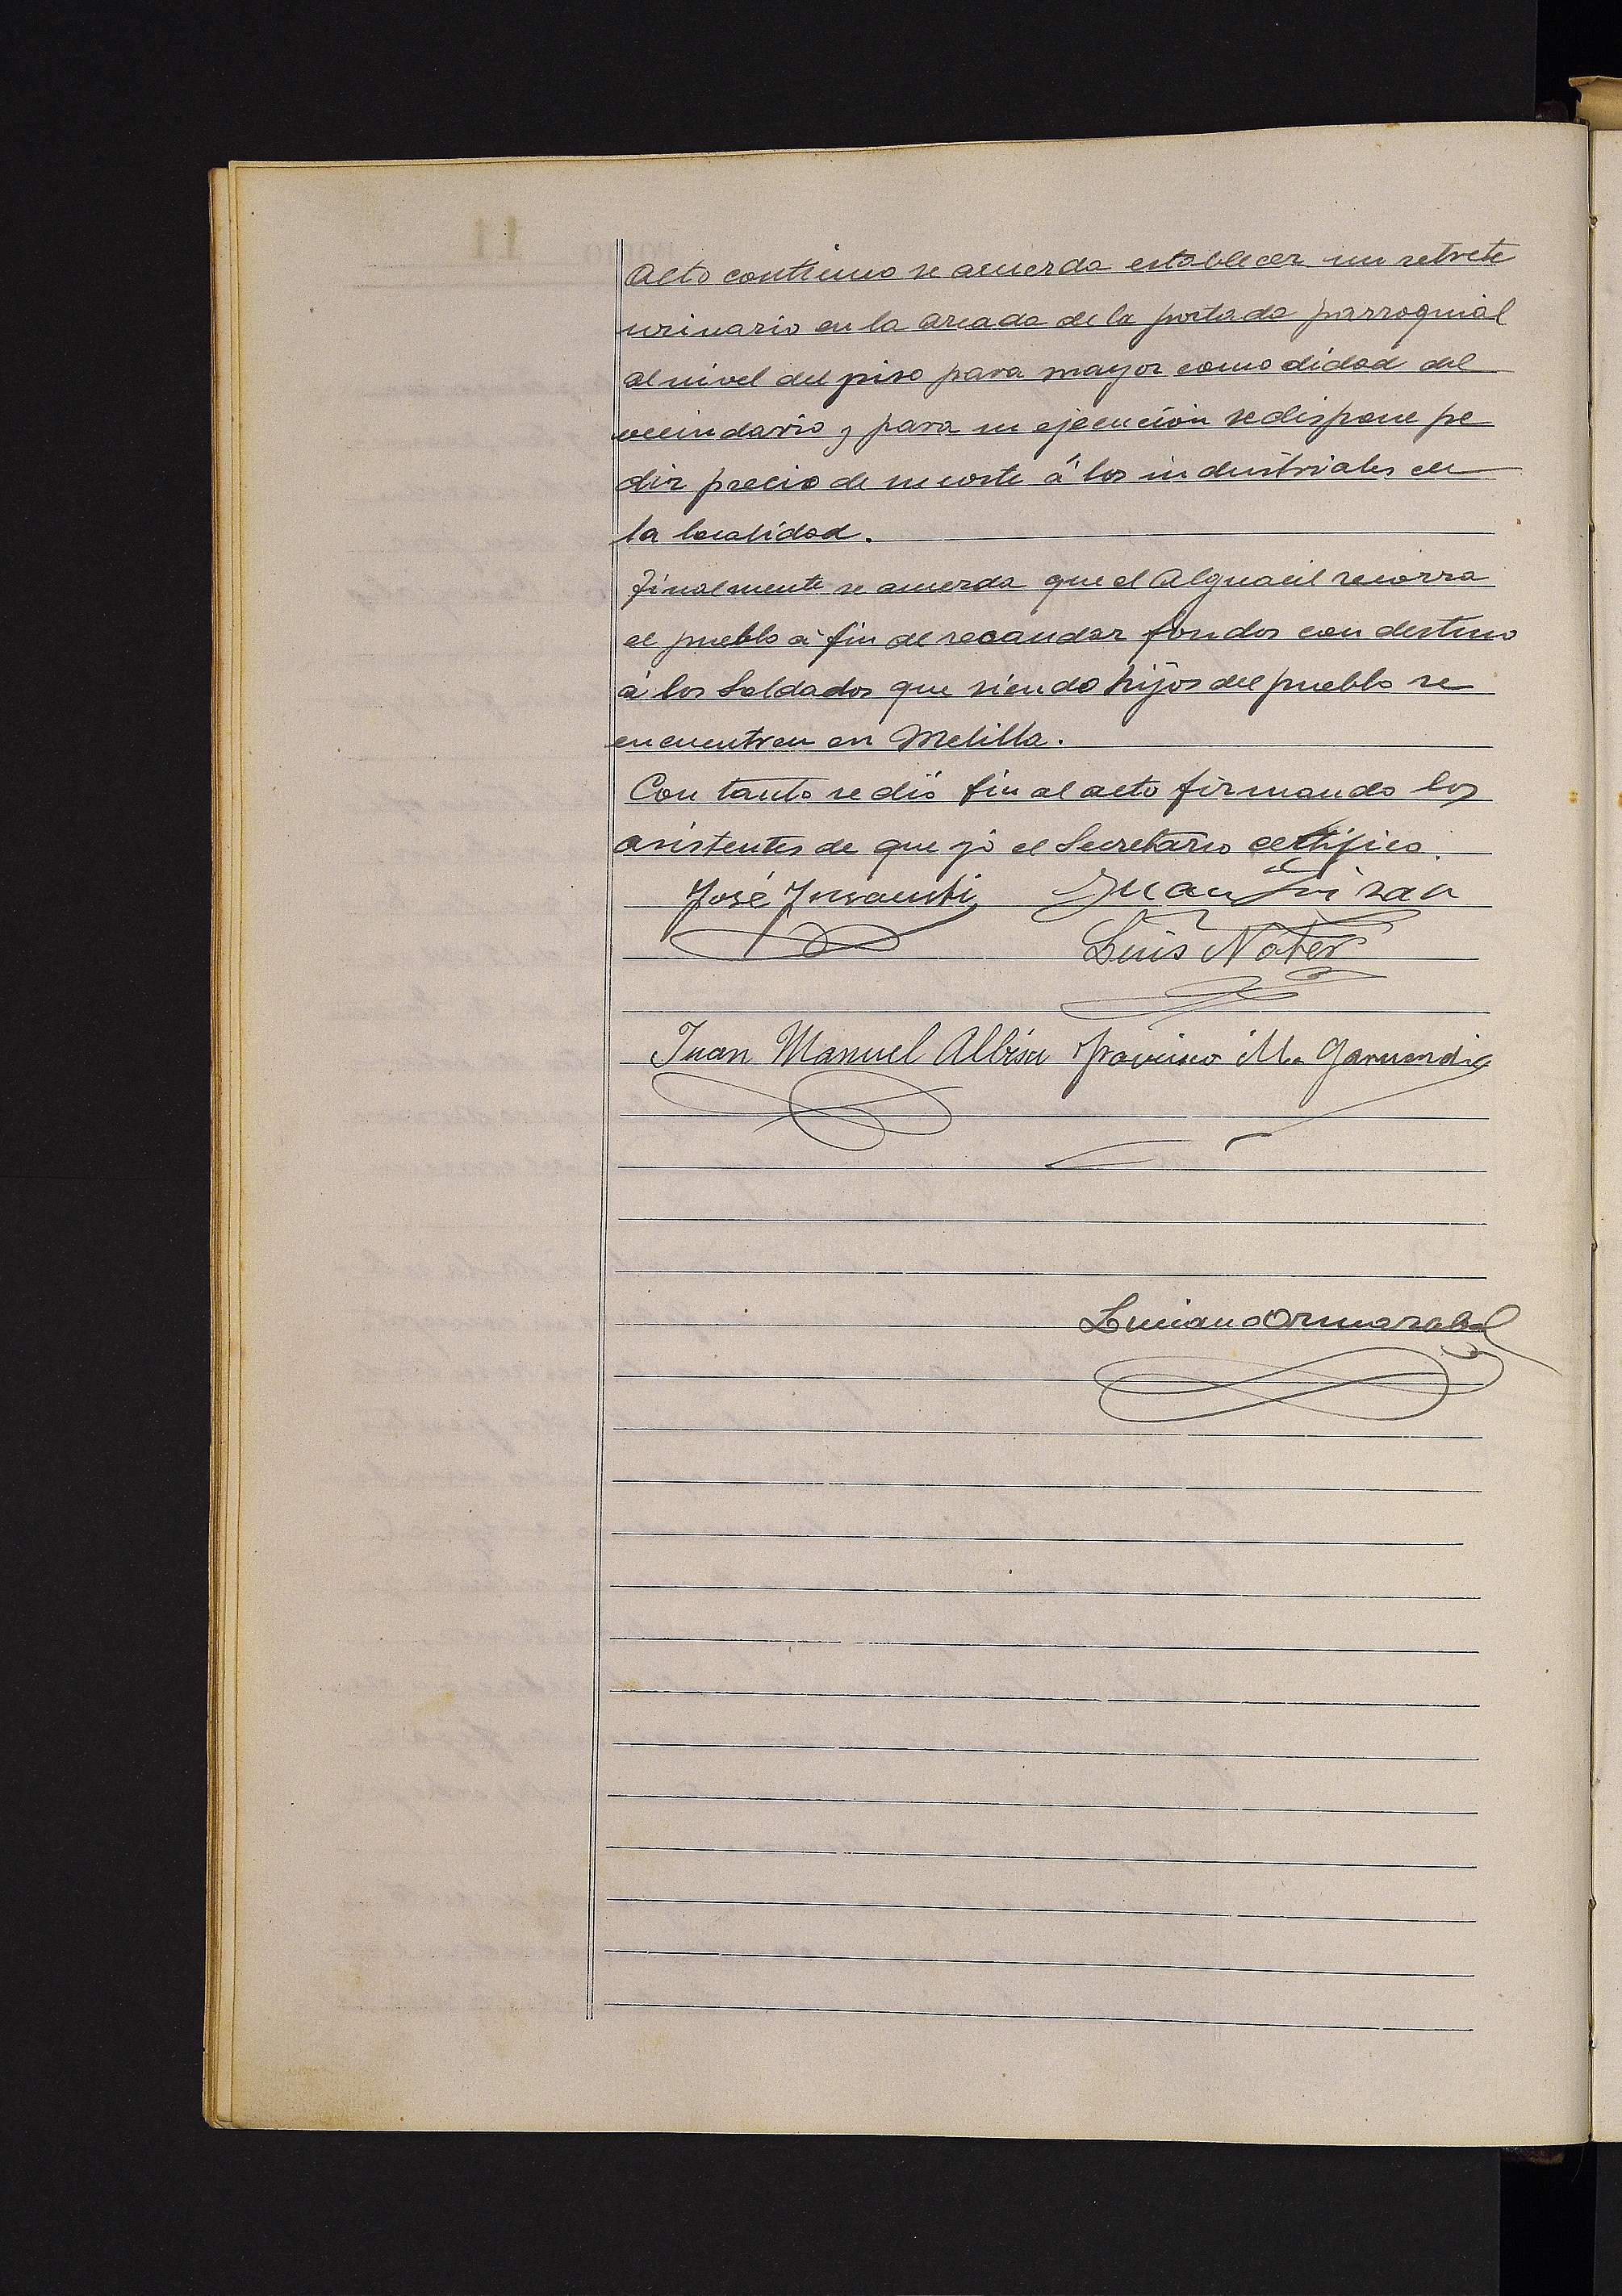 Acto continuo se acuerda establecer un retrete
urinario en la arcada de la portada parroquial
al nivel del piso para mayor comodidad del
vecindario y para su ejecución se dispone pe
dir precio de su coste á los industriales de
la localidad.
Finalmente se acuerda que el Alguacil recorra
el pueblo á fin de recaudar fondos con destino
á los Soldados que siendo hijos del pueblo se
encuentren en Melilla.
Con tanto se dió fin al acto firmando los
asistentes de que yó el Secretario certifico.
José Insausti Juan
Luis Noter
Juan Manuel Albisu Francisco M. Garmendia
Luciano Ormazabal